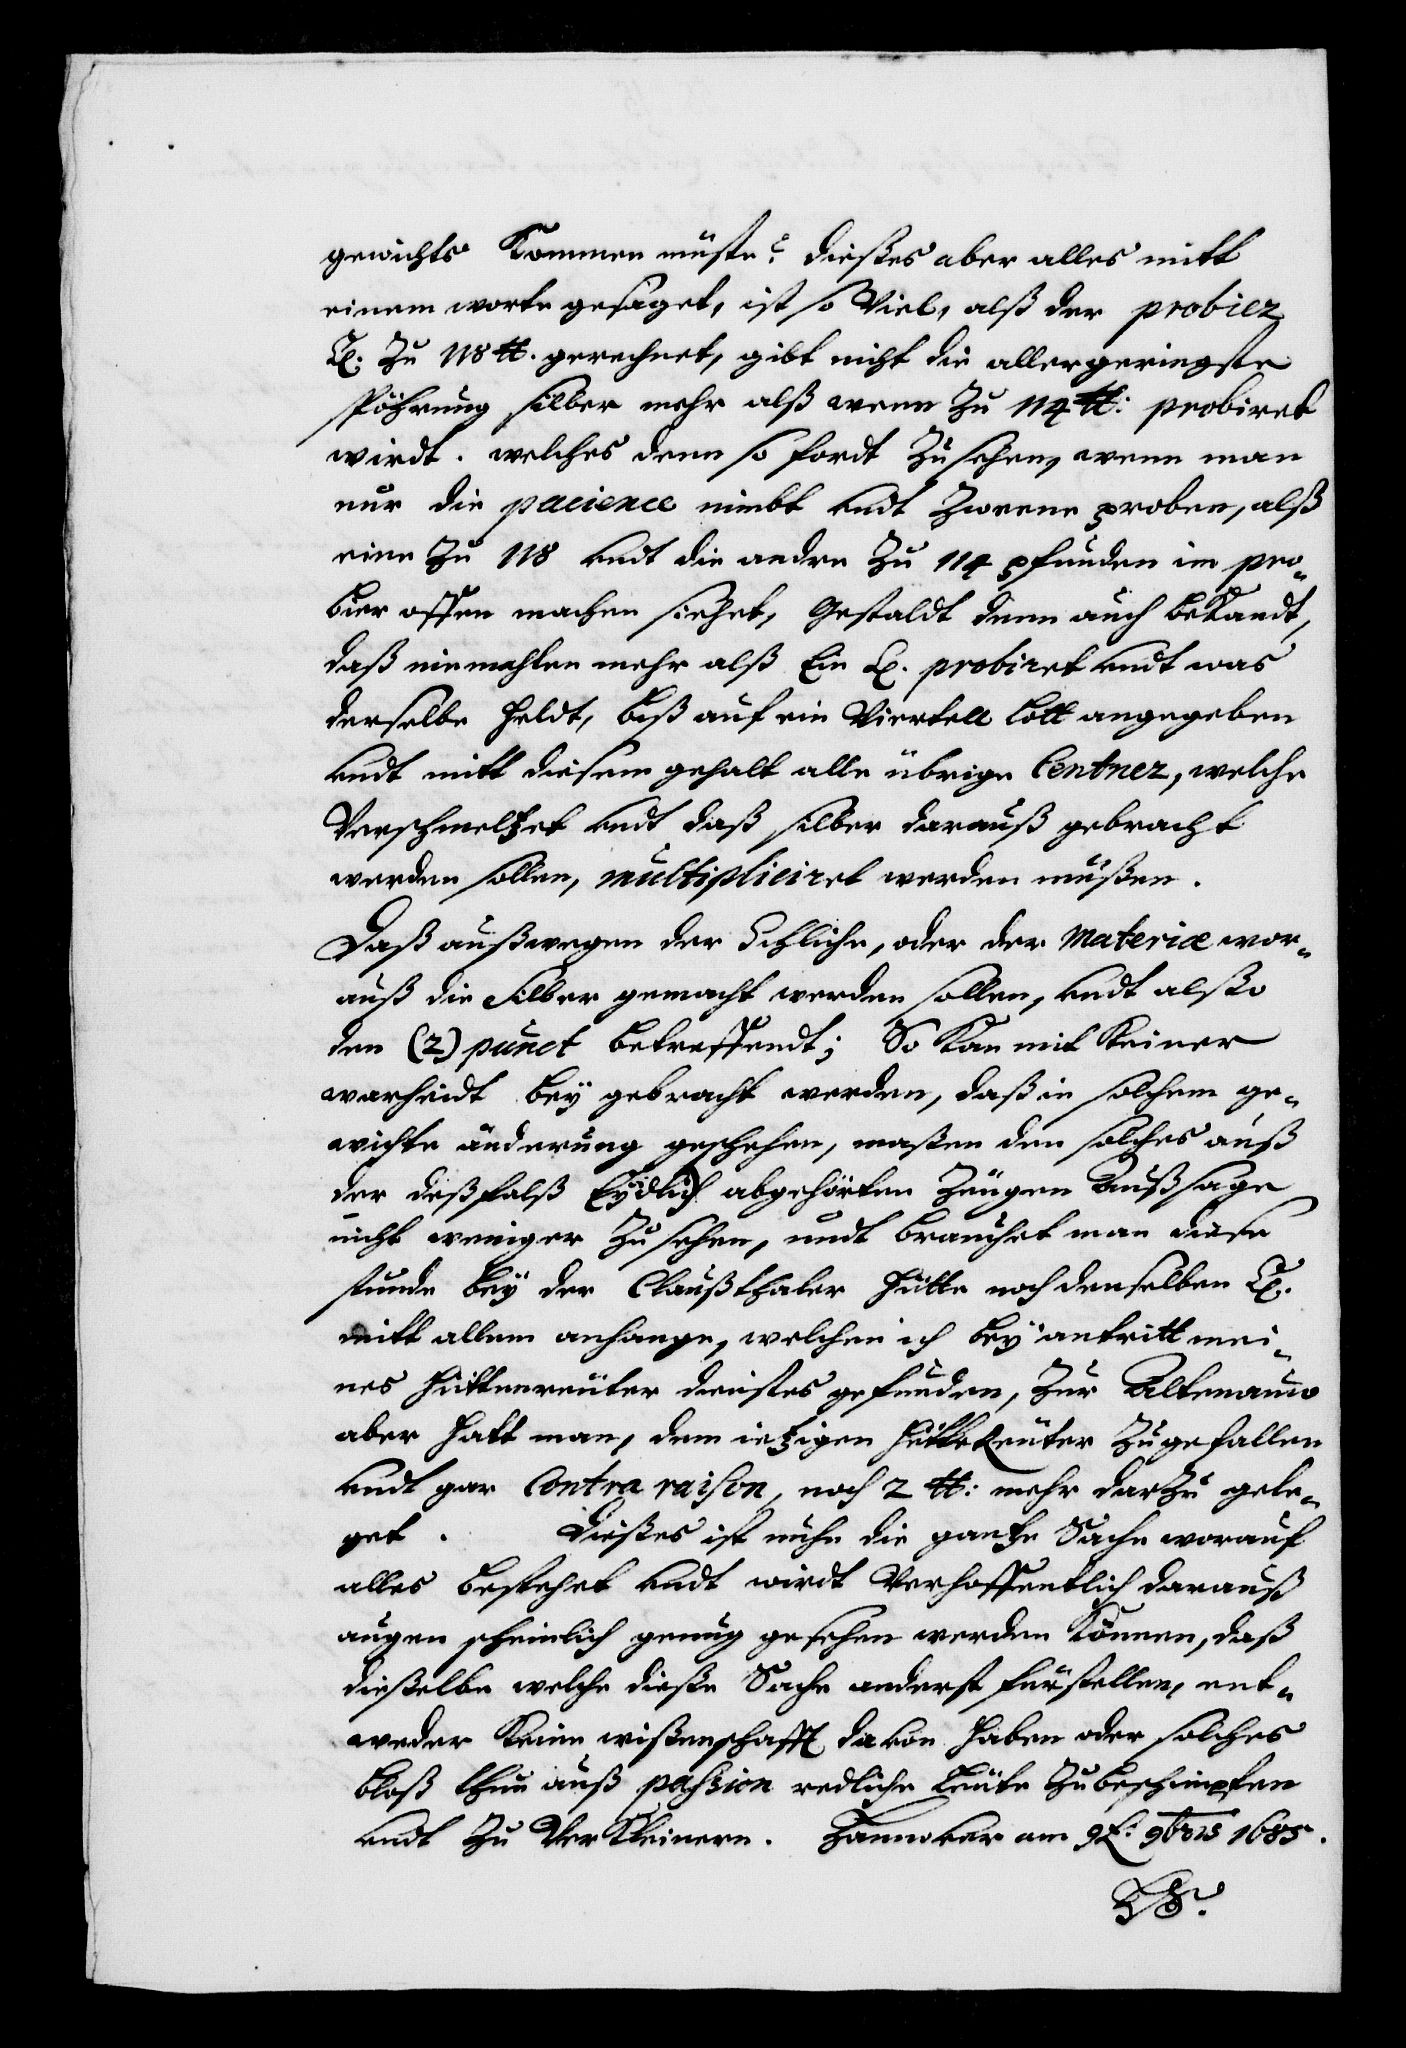 gewichts Kommen müste? dießes aber alles mitt
einem worte gesaget, ist so Viel, alß der probier
C. Zu 118 ℔. gerechnet, gibt nicht die allergeringste
silber mehr alß wenn Zu 114 ℔: probiret
wirdt. welches denn so fordt Zu sehen, wenn man
nur die pacience nimbt undt Zweene proben, alß
eine Zu 118 undt die andre Zu 114 pfunden im pro„
bier offen machen siehet, Gestaldt denn auch beKandt,
daß niemahlen mehr alß Ein C. probiret undt was
derselbe heldt, biß auf ein Viertell lott angegeben
undt mitt diesem gehalt alle übrige Centner, welche
Verschmeltzet undt daß silber darauß gebracht
werden sollen, multipliciret werden müßen.
Daß außwegen der Schliche, oder der Materiæ wor„
auß die Silber gemacht werden sollen, undt alßo
den (2) punct betreffendt; So Kan mit Keiner
warheidt bey gebracht werden, daß in solchem ge„
wichte änderung geschehen, maßen den solches auß
der deßfalß Eÿdlich abgehörten Zeugen Außsage
nicht weniger Zu sehen, undt brauchet man diese
stunde beÿ der Claußthaler Hütte noch denselben C.
mitt allem anhange, welchen ich beÿ antritt mei„
nes Hüttenreuter dienstes gefunden, Zur Altenauw
aber hatt man, dem ietzigen HütteReuter Zu gefallen
undt gar Contra raison, noch 2 ℔: mehr darZu gele„
get. Dießes ist nuhn die gantze Sache worauf
alles bestehet undt wirdt Verhoffentlich darauß
augen scheinlich genug gesehen werden Können, daß
dießelbe welche dieße Sache anderst fürstellen, ent„
weder Keine wißenschafft davon haben oder solches
bloß thun auß passion redliche Leüte Zu beschimpfen
undt Zu VerKleinern. Hannover am 9t: 9bris 1685.